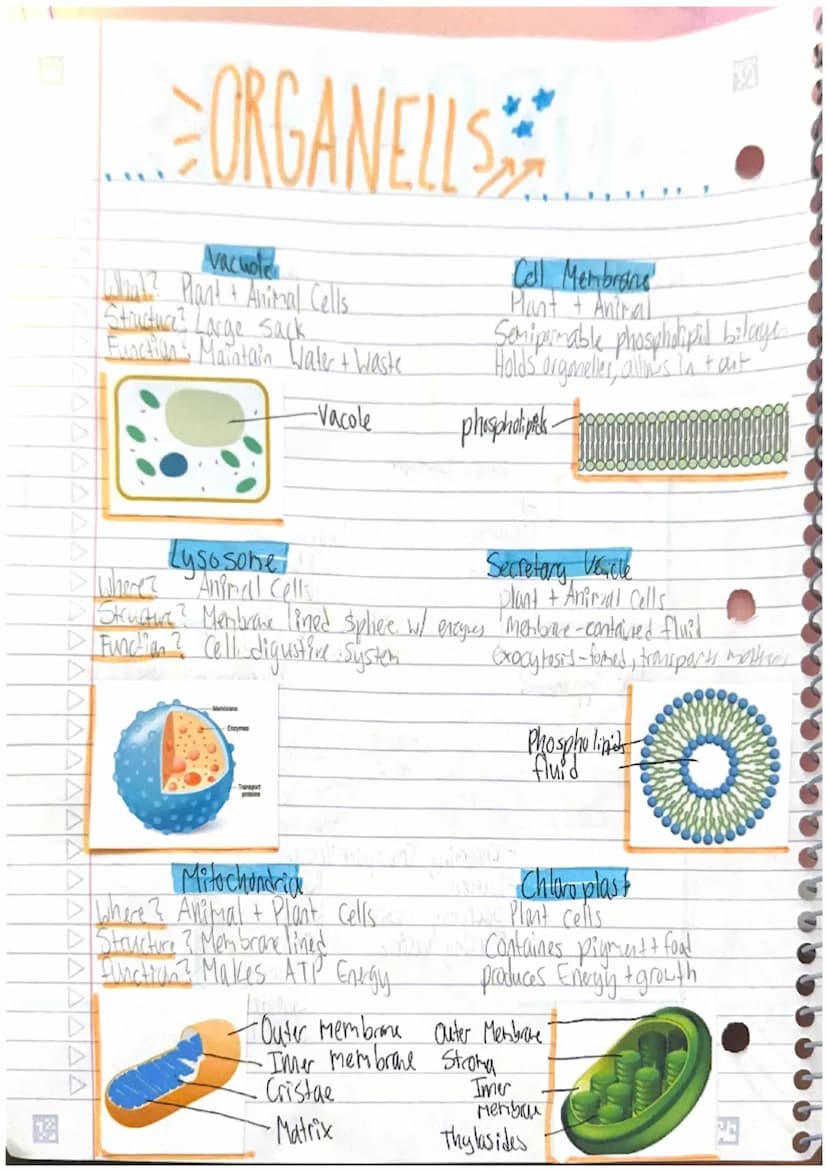 ORGANELLS
Vacuole
What? Plant + Animal Cells
Structure? Large Sack
Function? Maintain Water + Waste
Vacole
Cell Membrane
Plant + Animal
Semipermable phospholipid bilayer
Holds organelles, allows in + out
phospholipids
Lysosome
Where? Animal Cells
Structure? Membrane lined sphere w/ enzymes
Function? Cell digustive system
Membrane
Enzymes
Transport
proteins
Secretary Vesicle
Plant + Animal Cells
Membrane-contained fluid
exocytosis-fomed, transports
Phospholipids
fluid
Mitochondria
Where? Animal + Plant Cells
Structure? Membrane lined
Function? Makes ATP Energy
Outer Membrane
Inner membrane
Cristae
Matrix
Chloroplast
Plant cells
Containes pigment + food
produces Energy + growth
Outer Membrane
Stroma
Inner
Membrane
Thylasides